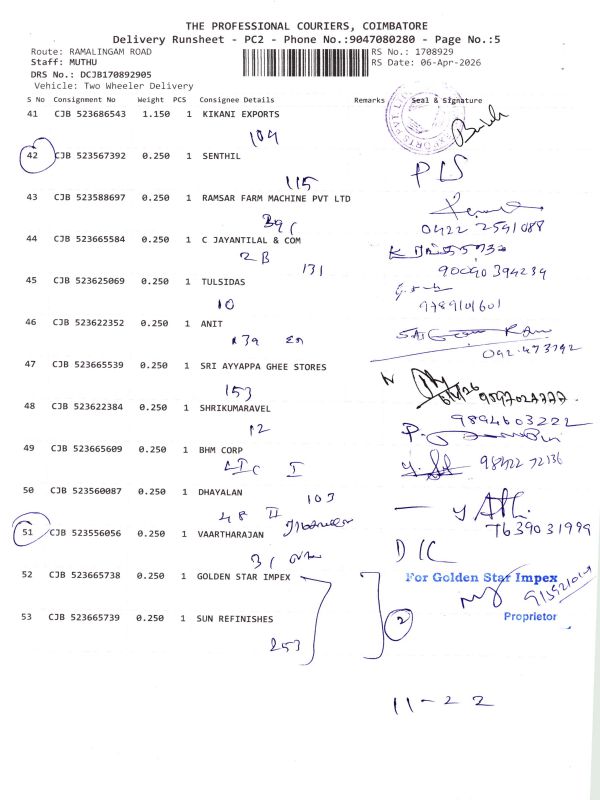 THE PROFESSIONAL COURIERS, COIMBATORE
Delivery Runsheet - PC2 - Phone No.:9047080280 - Page No.:5
Route: RAMALINGAM ROAD RS No.: 1708929
Staff: MUTHU RS Date: 06-Apr-2026
DRS No.: DCJB170892905
Vehicle: Two Wheeler Delivery
S No Consignment No Weight PCS Consignee Details Remarks Seal & Signature
41 CJB 523686543 1.150 1 KIKANI EXPORTS
104
42 CJB 523567392 0.250 1 SENTHIL PLS
115
43 CJB 523588697 0.250 1 RAMSAR FARM MACHINE PVT LTD
39 (
0422 2541088
44 CJB 523665584 0.250 1 C JAYANTILAL & COM
2 B
131
90090394239
45 CJB 523625069 0.250 1 TULSIDAS
10
9789101601
46 CJB 523622352 0.250 1 ANIT
47 CJB 523665539 0.250 1 SRI AYYAPPA GHEE STORES
153
48 CJB 523622384 0.250 1 SHRIKUMARAVEL
9894603222
12
49 CJB 523665609 0.250 1 BHM CORP
98422 72136
50 CJB 523560087 0.250 1 DHAYALAN
103
48 II
7639031999
51 CJB 523556056 0.250 1 VAARTHARAJAN
D/C
31
52 CJB 523665738 0.250 1 GOLDEN STAR IMPEX
For Golden Star Impex
53 CJB 523665739 0.250 1 SUN REFINISHES
2
Proprietor
253
11-22